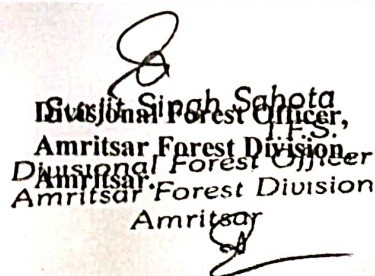 Surjit Singh Sahota
Divisional Forest Officer,
I.F.S.
Amritsar Forest Division,
Divisional Forest Officer
Amritsar.
Amritsar Forest Division
Amritsar